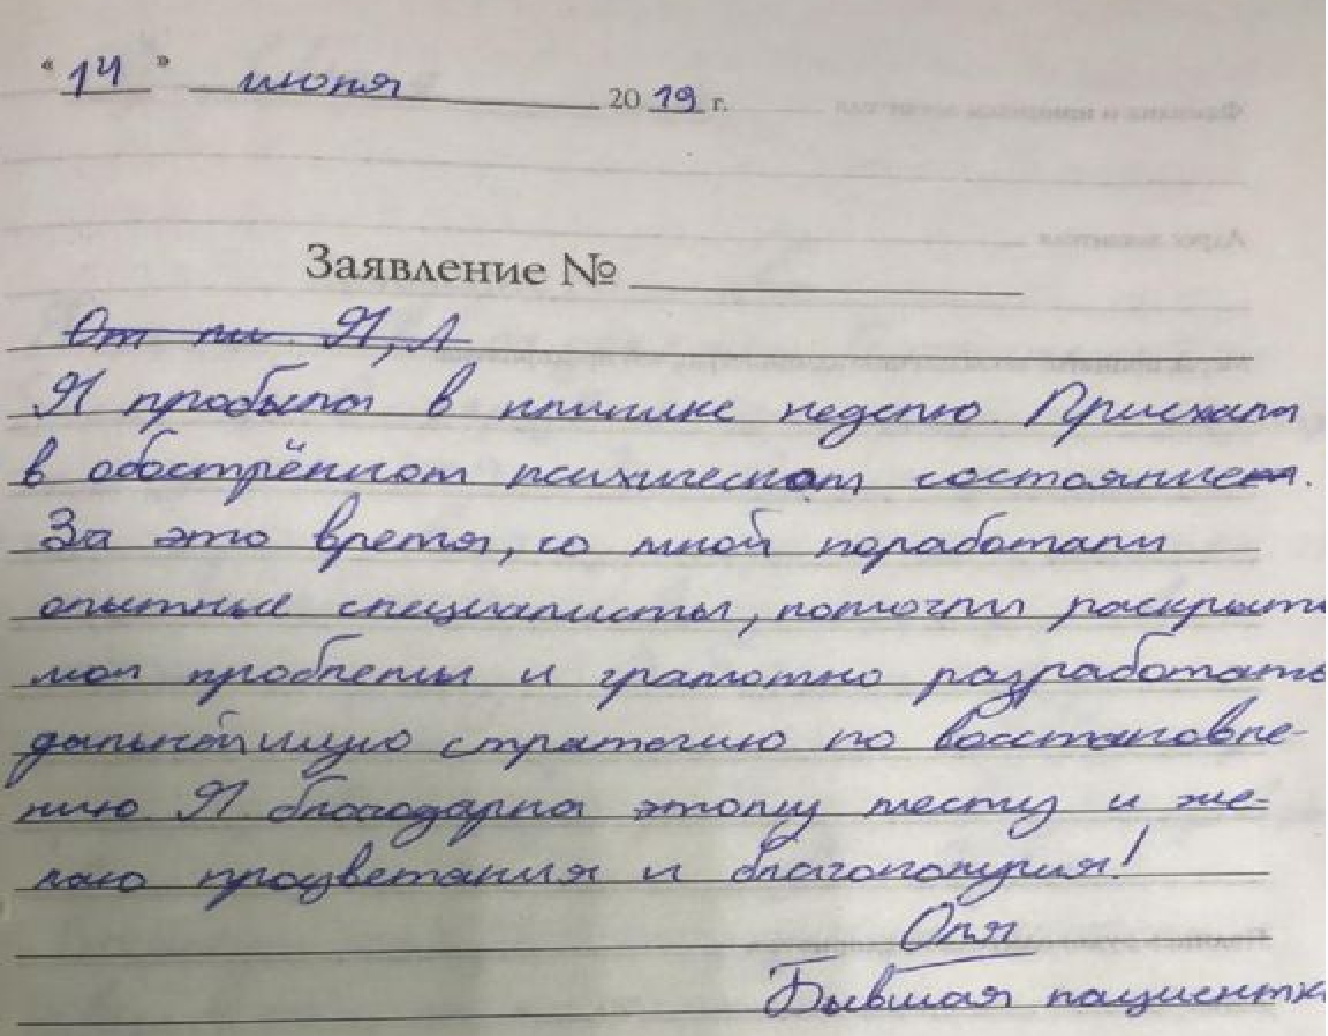 « 14 » июня 2019 г.
Заявление № 
От Я, Л
Я пробыла в клинике неделю Приехала
в обострённом психическом состояние.
За это время, со мной поработали
опытные специалисты, помогли раскрыть
мои проблемы и грамотно разработать
дальнейшую стратегию по восстановле-
нию. Я благодарна этому месту и же-
лаю процветания и благополучия!
Оля
Бывшая пациентка